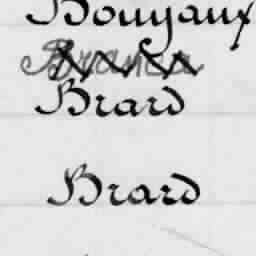 Bouyaux
Brard
Brard